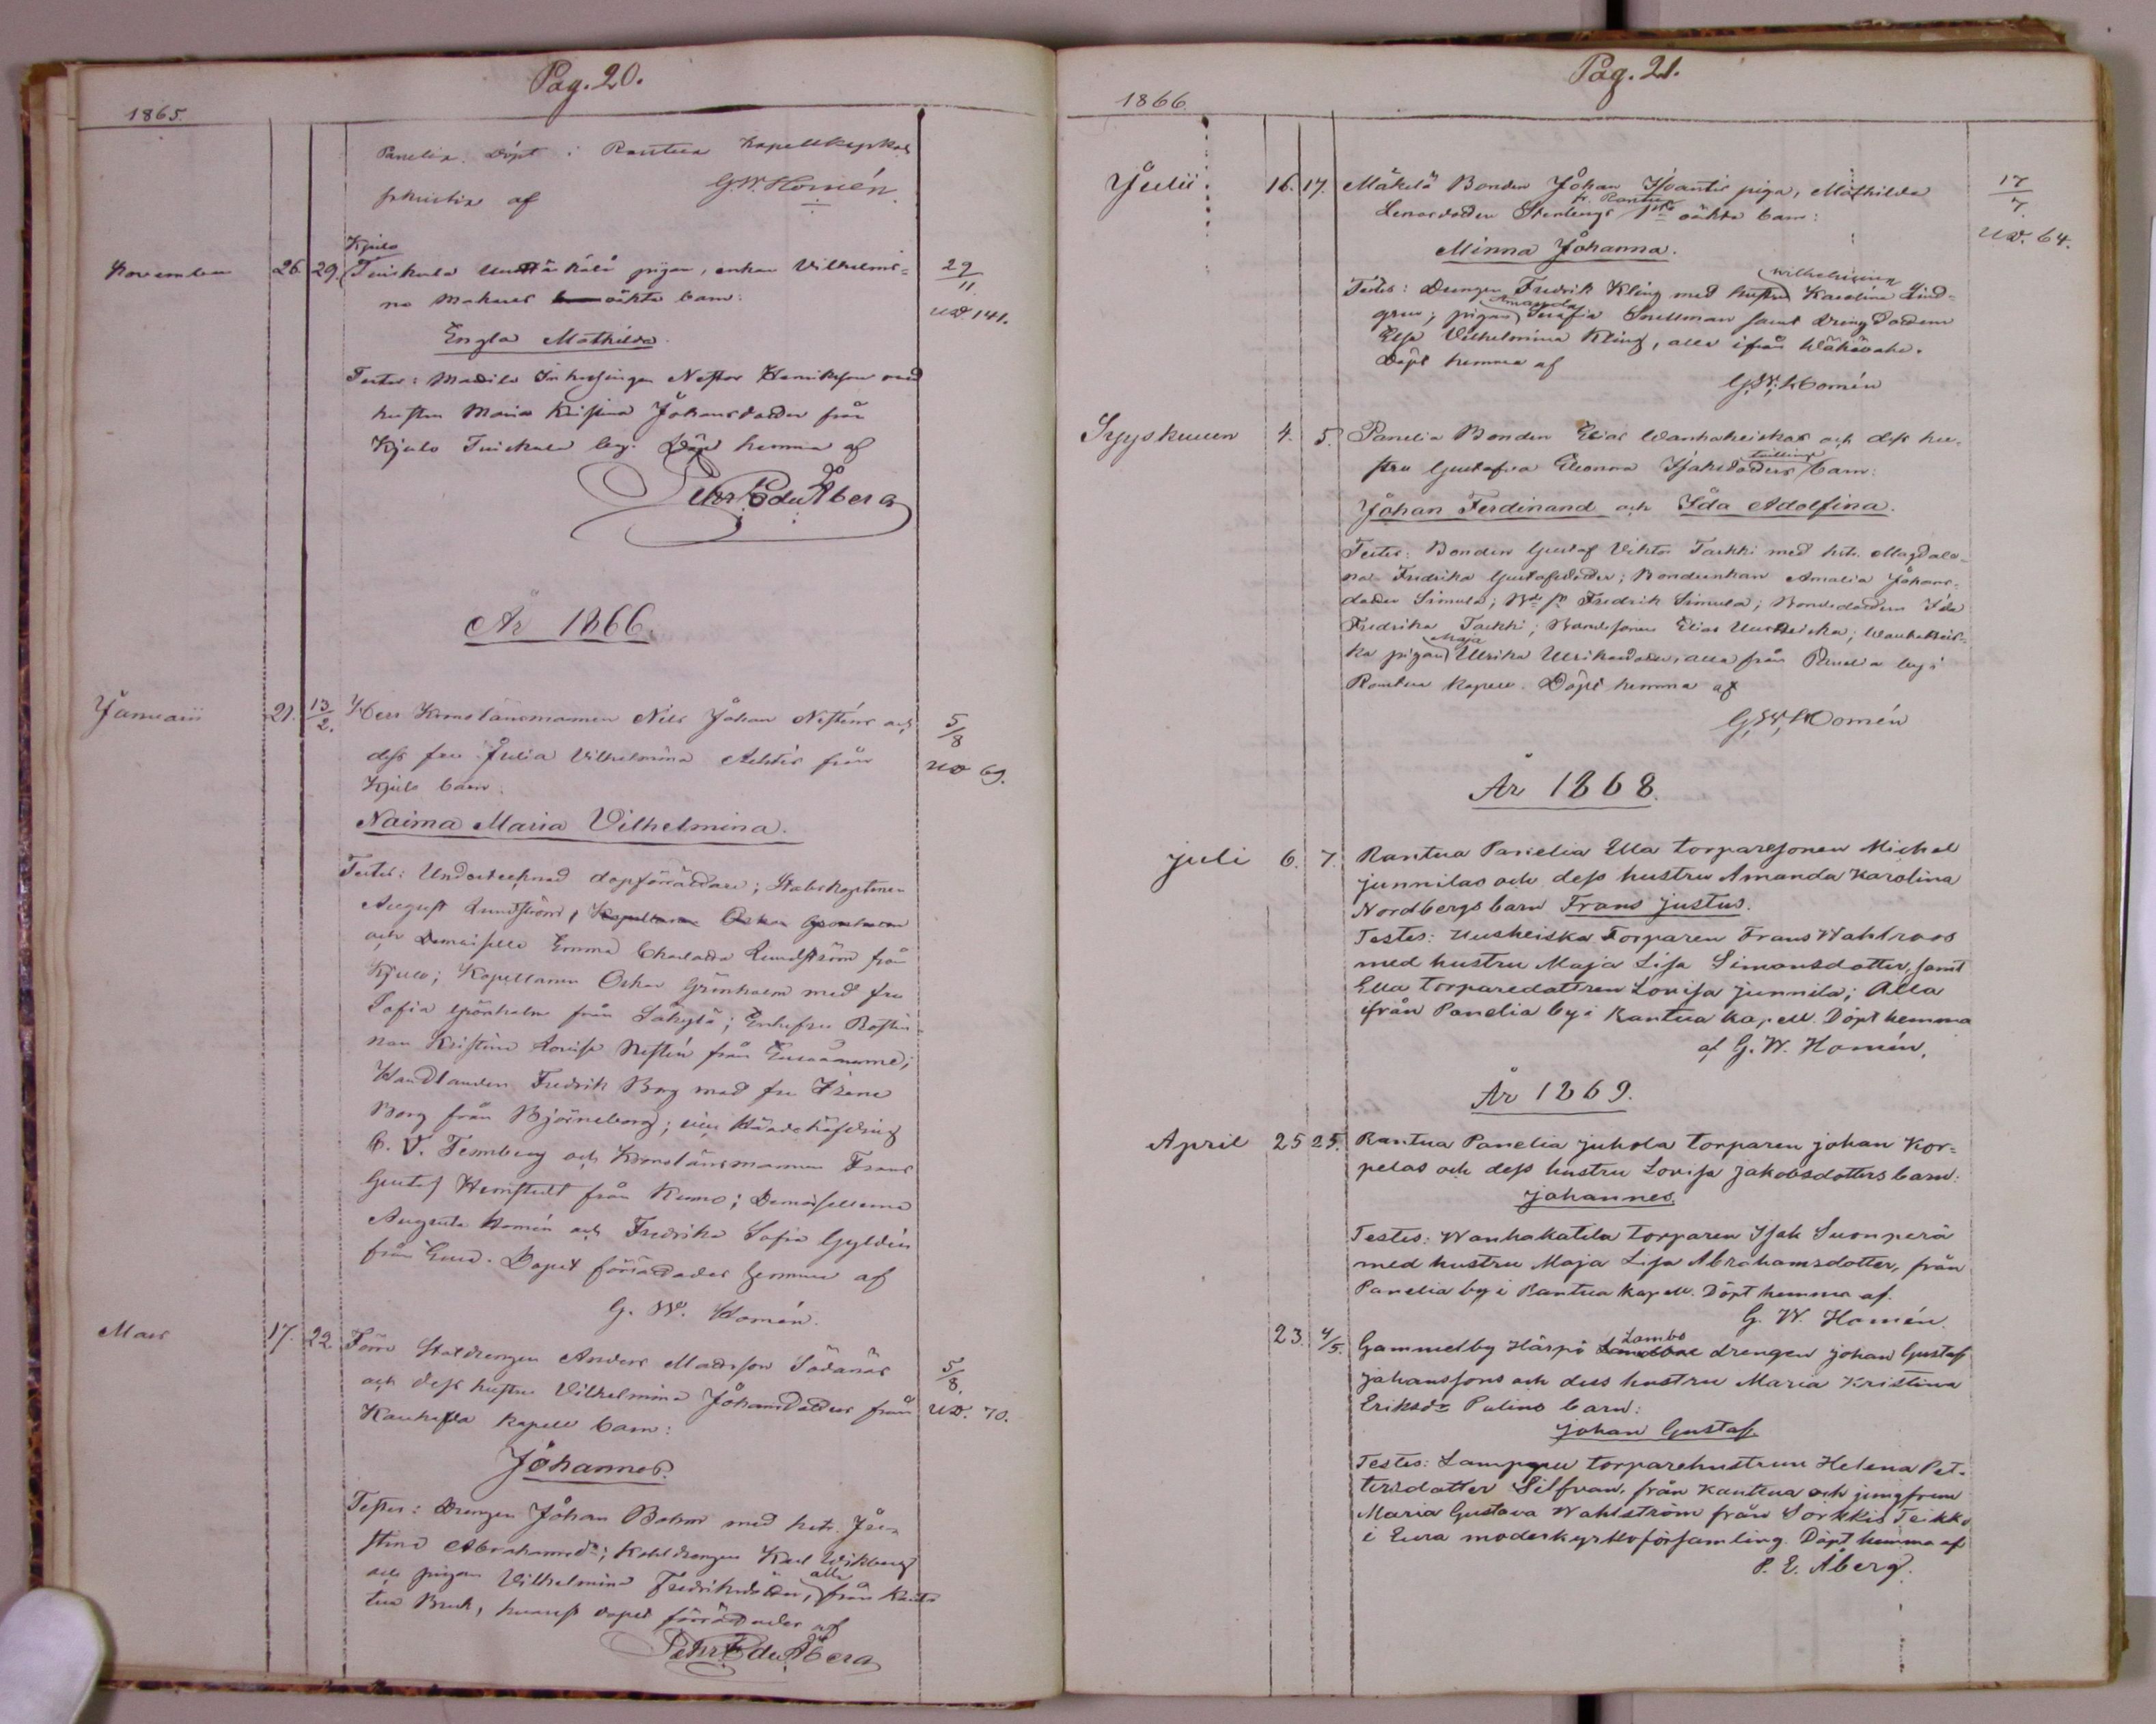 Pag. 20.
1865.
Panelia. Döpt i Kantua Kapellkyrkas
sakristia af G. W. Homén.
Kjulo
November 26. 29. Tuiskula pigan, enkan Vilhelmi- 29/11
na oäkta barn: Utd. 141.
Engla Mathilda.
Testes: Inhysingen Nestor Henriksson med
hustru Maria Kristina Johansdotter från
Kjulo Tuiskula by. Döpt hemma af
Pehr Edu Åberg
År 1866.
Januarii 21. 13/2. Herr Kronolänsmannen Nils Johan Nesténs och 5/8
dess fru Julia Vilhelmina från Utd 69.
Kjulo barn:
Naima Maria Vilhelmina.
Testes: Undertecknad dopförrättare; Stabskaptenen
August Lundström,
och Demoiselle Emma Charlotta Lundström från
Kjulo; Kapellanen Oskar Grönholm med fru
Sofia Grönholm från Säkylä; Enkefru
Kristina Lovisa Nestén från Euraåminne;
Handlanden Fredrik Borg med fru Irene
Borg från Björneborg; vice Häradshöfding
C. V. och Kronolänsmannen Frans
Gustaf från Kumo; Demoisellerna
Augusta Homén och Fredrika Sofia Gyldén
från Eura. Dopet förrättades hemma af
G. W. Homén.
Mars 17. 22. Förre Statdrengen Anders Mattsson 5/8.
och dess hustru Vilhelmina Johansdotters från Utd. 70.
Kapell barn:
Johannes.
Testes: Drengen Johan Bohm med hstr. Ju-
stina Abrahamsdr; Karl Wikberg
och pigan Vilhelmina Fredriksdotter, alla från Kaut-
tua Bruk, hvarest dopet förrättades af
Pehr Edu Åberg
Pag. 21.
1866.
Julii 16. 17. Mäkelä Bonden Johan piga, Mathilda 17/7.
oäkta barn: Utd. 64.
Minna Johanna.
Testes: Drengen Fredrik Kling med hustru Wilhelmina Karolina Lind-
gren; pigan Amanda Serafia Snellman samt drengdottern
Elsa Vilhelmina Kling, alla ifrån
Döpt hemma af
G. W. Homén
Syyskuun 4. 5. Panelia Bonden Elias Wanhaheiskas och dess hu-
stru Gustafva Eleonora Isaksdotters tvilling barn:
Johan Ferdinand och Ida Adolfina.
Testes: Bonden Gustaf Viktor Tarkki med hstr. Magdale-
na Fredrika Gustafsdotter; Bondenkan Amalia Johans-
dotter Simula; Fredrik Simula; Bondedottren Ida
Fredrika Tarkki; Bondesonen Elias Uusheiska; Wanhaheis-
ka pigan Maja Ulrika Ulriksdotter, alla från Panelia by i
Kantua kapell. Döpt hemma af
G. W. Homén
År 1868.
Juli 6. 7. Kantua Panelia Ella torparesonen Michel
Junnilas och dess hustru Amanda Karolina
Nordbergs barn Frans Justus.
Testes: Uusheiska Torparen Frans Wahlroos
med hustru Maja Lisa Simonsdotter, samt
Ella torparedottren Lovisa Junnila; Alla
ifrån Panelia by i Kantua Kapell. Döpt hemma
af G. W. Homén.
År 1869.
April 25 25. Kantua Panelia Juhola torparen Johan Kor-
pelas och dess hustru Lovisa Jakobsdotters barn:
Johannes.
Testes: Wanhakatila torparen Isak Suonperä
med hustru Maja Lisa Abrahamsdotter, från
Panelia by i Kantua Kapell. Döpt hemma af.
G. W. Homén.
23. 4/5. Gammelby Härpö Lambo drengen Johan Gustaf
Johanssons och dess hustru Maria Kristina
Eriksdr Palins barn:
Johan Gustaf.
Testes: Lamppu torparehustrun Helena Pet-
tersdotter Silfvan, från Kauttua och jungfrun
Maria Gustava Wahlström från Sorkkis Teikko
i Eura moderkyrkoförsamling. Döpt hemma af
P. E. Åberg.